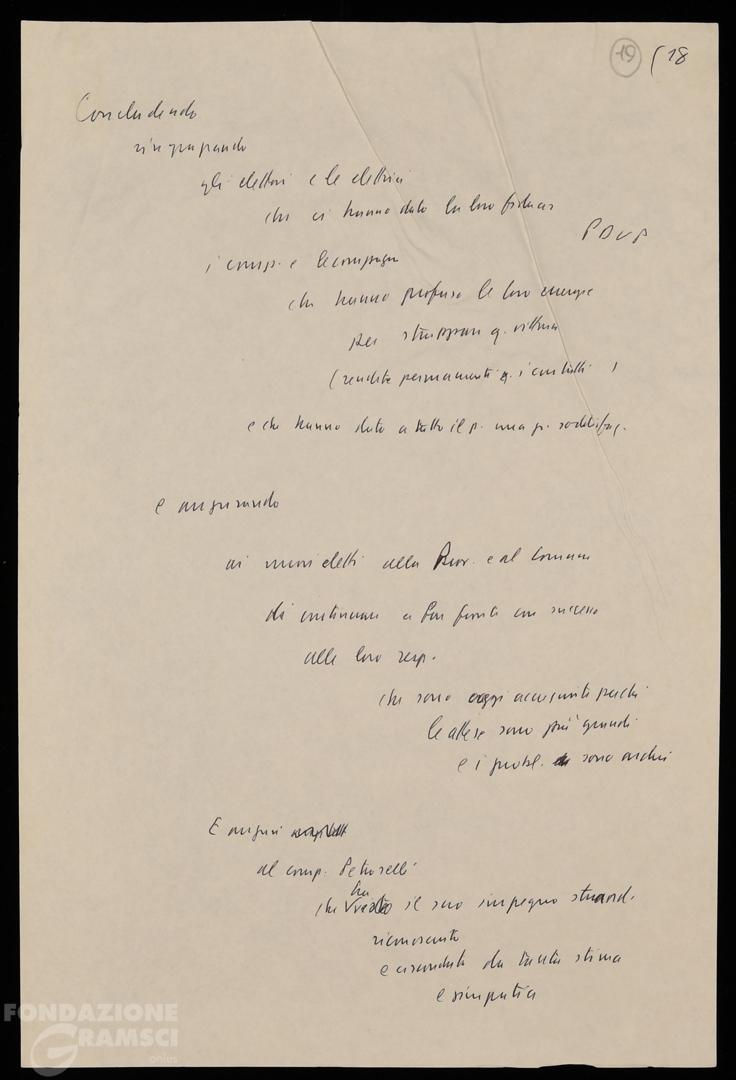 19 (18
Concludendo
ringraziando
gli elettori e le elettrici
che ci hanno dato la loro fiducia
PDUP
i comp. e le compagne
che hanno profuso le loro energie
per strappare q. vittoria
(rendete permanenti q. i contatti)
e che hanno dato a tutto il p. una gr. soddisfaz.
e augurando
ai nuovi eletti alla Prov. e al Comune
di continuare a far fronte con successo
alle loro resp.
che sono oggi accresciute perché
le attese sono più grandi
e i probl. sono ardui
E auguri
al comp. Petroselli
che ha il suo impegno
riconosciuto
e circondato da tanta stima
e simpatia
FONDAZIONE
GRAMSCI
onlus